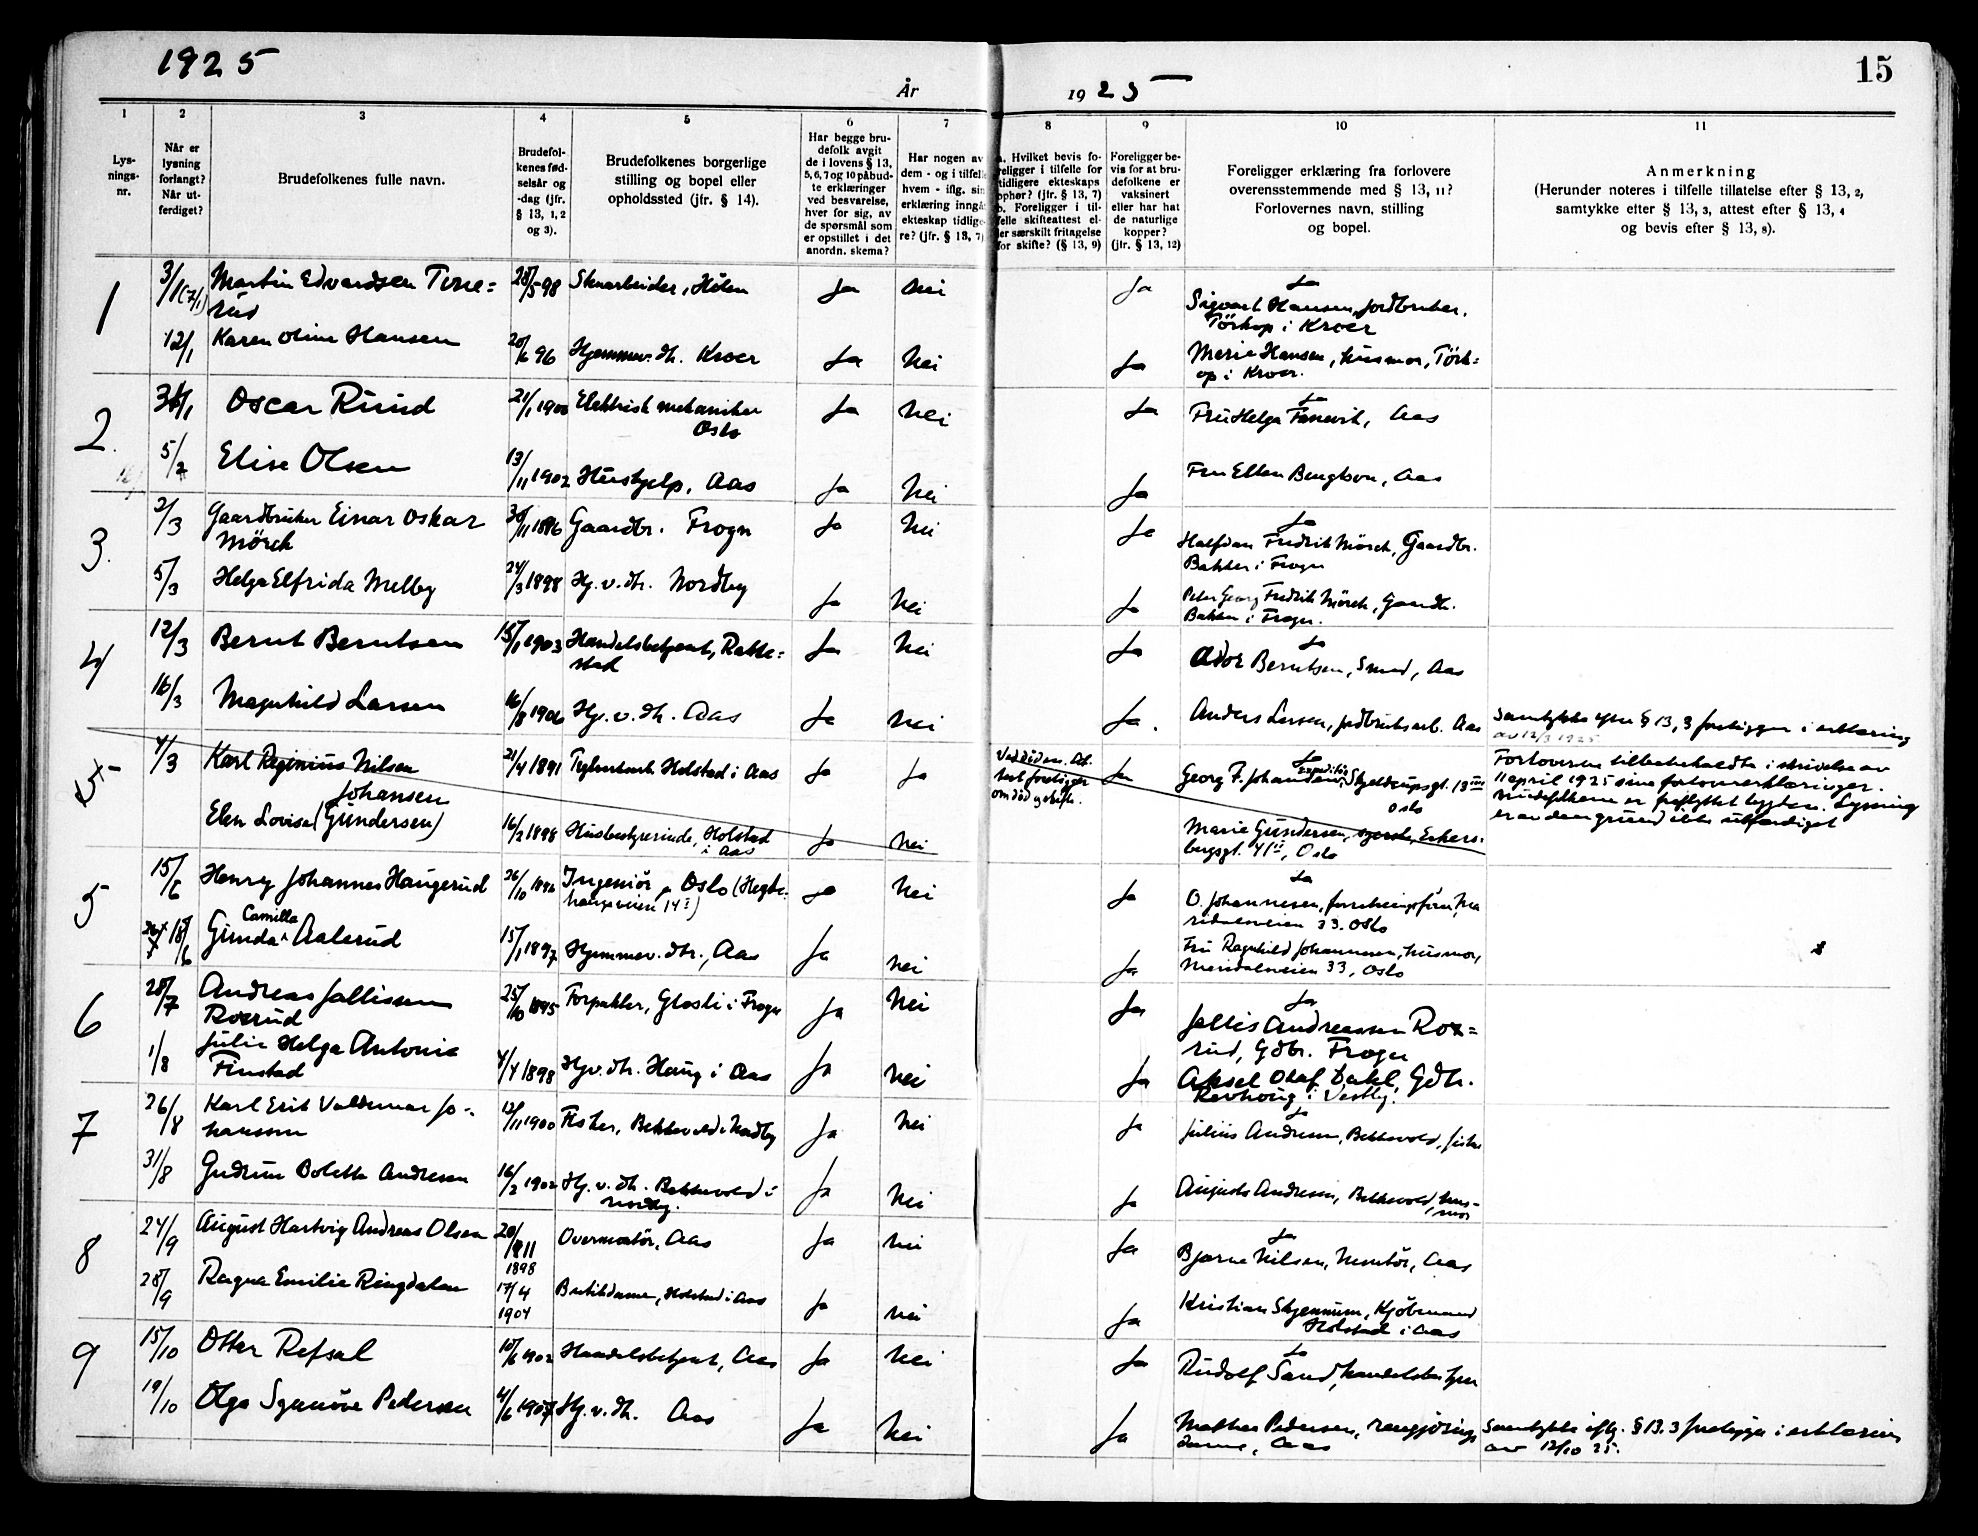 1925
År
1925
15
1
2
3
4
5
6
7
8
9
10
11
Lys-
nings-
nr.
Når er
lysning
forlangt?
Når ut-
ferdiget?
Brudefolkenes fulle navn.
Brudefol-
kenes fød-
selsår og
-dag (jfr.
§ 13, 1, 2
og 3).
Brudefolkenes borgerlige
stilling og bopel eller
opholdssted (jfr. § 14).
Har begge bru-
defolk avgit
de i lovens § 13,
5, 6, 7 og 10 påbud-
te erklæringer
ved besvarelse,
hver for sig, av
de spørsmål som
er opstillet i det
anordn. skema?
Har nogen av
dem - og i tilfelle
hvem - iflg. sin
erklæring inngå
ekteskap tidlige
re? (jfr. § 13, 7)
a. Hvilket bevis fo-
religger i tilfelle for
tidligere ekteskaps
ophør? (jfr. § 13, 7)
b. Foreligger i til-
felle skifteattest el-
ler særskilt fritagelse
for skifte? (§ 13, 9)
Foreligger be-
vis for at bru-
defolkene er
vaksinert
eller har hat
de naturlige
kopper?
(jfr. § 13, 12)
Foreligger erklæring fra forlovere
overensstemmende med § 13, 11?
Forlovernes navn, stilling
og bopel.
Anmerkning
(Herunder noteres i tilfelle tillatelse efter § 13, 2,
samtykke efter § 13, 3, attest efter § 13, 4
og bevis efter § 13, 8).
1
3/1 (7/1) Martin Edvardsen 28/5-98 Skoarbeider, Hølen Ja Nei Ja Ja
Sigvart Hansen, jordbruker,
Törkop i Kroer
12/1 Karen Oline Hansen 20/6 96 Hjemmev. dtr. Kroer Ja Nei Ja Marie Hansen, husmor, Tørk=
op i Kroer.
2.
Oscar Ruud 21/1 1900 Elektrisk mekaniker Ja Nei Ja Ja
Oslo Fru Helga, Aas
5/2 Elise Olsen 13/11 1902 Hushjelp, Aas Ja Nei Ja Fru Ellen Bengtson, Aas
3.
2/3 Gaardbruker Einar Oskar 30/11 1896 Gaardbr. Frogn Ja Nei Ja Ja
Mörch Halfdan Fredrik Mörch, Gaardbr.
Bakker i Frogn
5/3 Helga Elfrida Melby 24/3 1898 Hj. v. dtr. Nordby Ja Nei Ja Peter Georg Fredrik Mörch, Gaardb.
Bakken i Frogn.
4
12/3 Bernt Berntsen 15/1 1903 Handelsbetjent, Rakke= Ja Nei Ja Ja
stad Ador Berntsen, Smed, Aas
16/3 Magnhild Larsen 16/8 1906 Hj. v. dtr. Aas Ja Nei Ja. Anders Larsen, jordbruksarb. Aas Samtykke efter § 13, 3 foreligger i erklæring
av 12/3 1925
5
4/3 Karl Reginius Nilsen 21/4 1891 Holstad i Aas Ja Ja Ved döden. At-
test foreligger
om död og skifte.
Ja Ja
Georg F. Johansen, Skjeldrupsgt. 13
Oslo
Forloverne tilbakekaldte i skrivelse av
11 april 1925 sine forlovererklæringer.
Brudefolkene er fraflyttet bygden. Lysning
er av den grund ikke utferdiget
Johansen
Elen Lovise (Gundersen) 16/2 1898 Husbestyrerinde, Holstad Ja Nei Marie Gundersen,
i Aas Oslo
5
15/6 Henry Johannes Haugerud 26/10 1896 Ingeniør, Oslo (Hegde- Ja Nei Ja Ja
haugsveien 14 I) O. Johannesen, forretningsfører, Ma
ridalsveien 33. Oslo
18/6 Gunda Camilla Aalerud 15/1 1897 Hjemmev. dtr., Aas Ja Nei Ja Fru Ragnhild Johannesen, husmor,
Maridalsveien 33, Oslo
6
28/7 Andreas Jallissen 25/10 1895 Forpakter, Glosli i Frogn Ja Nei Ja Ja
Roerud Jallis Andreassen Roe=
rud, Gdbr. Frogn
1/8 Julie Helga Antonie 4/4 1898 Hjv. dtr. Haug i Aas Ja Nei Ja Aksel Olaf Dahl, Gdbr.
Finstad Revhaug i Vestby.
7
26/8 Karl Erik Valdemar Jo- 12/11 1900 Fisker, Bekkevold i Nordby Ja Nei Ja Ja
hanssen Julius Andresen, Bekkevold, fisker
31/8 Gudrun Bolette Andresen 16/2 1902 Hj. v. dtr. Bekkevold i Ja Nei Ja Augusta Andresen, Bekkevold, hus-
Nordby. mor
8
24/9 August Hartvig Andreas Olsen 20/11 1898 Overmontör, Aas Ja Nei Ja Ja
Bjarne Nilsen, Montör, Aas
28/9 Ragna Emilie Ringdalen 17/4 1904 Butikdame, Holstad i Aas Ja Nei Ja Kristian Skjennum, Kjöbmand
Holstad i Aas
9
15/10 Otter Refsal 10/6 1902 Handelsbetjent, Aas Ja Nei Ja Ja
Rudolf Sand, handelsbetjen
19/10 Olga Synnöve Pedersen 4/6 1907 Hj. v. dtr. Aas Ja Nei Ja Mathea Pedersen, rengjörings
dame, Aas
Samtykke iflg. § 13. 3 foreligger i erklæring
av 12/10 25.